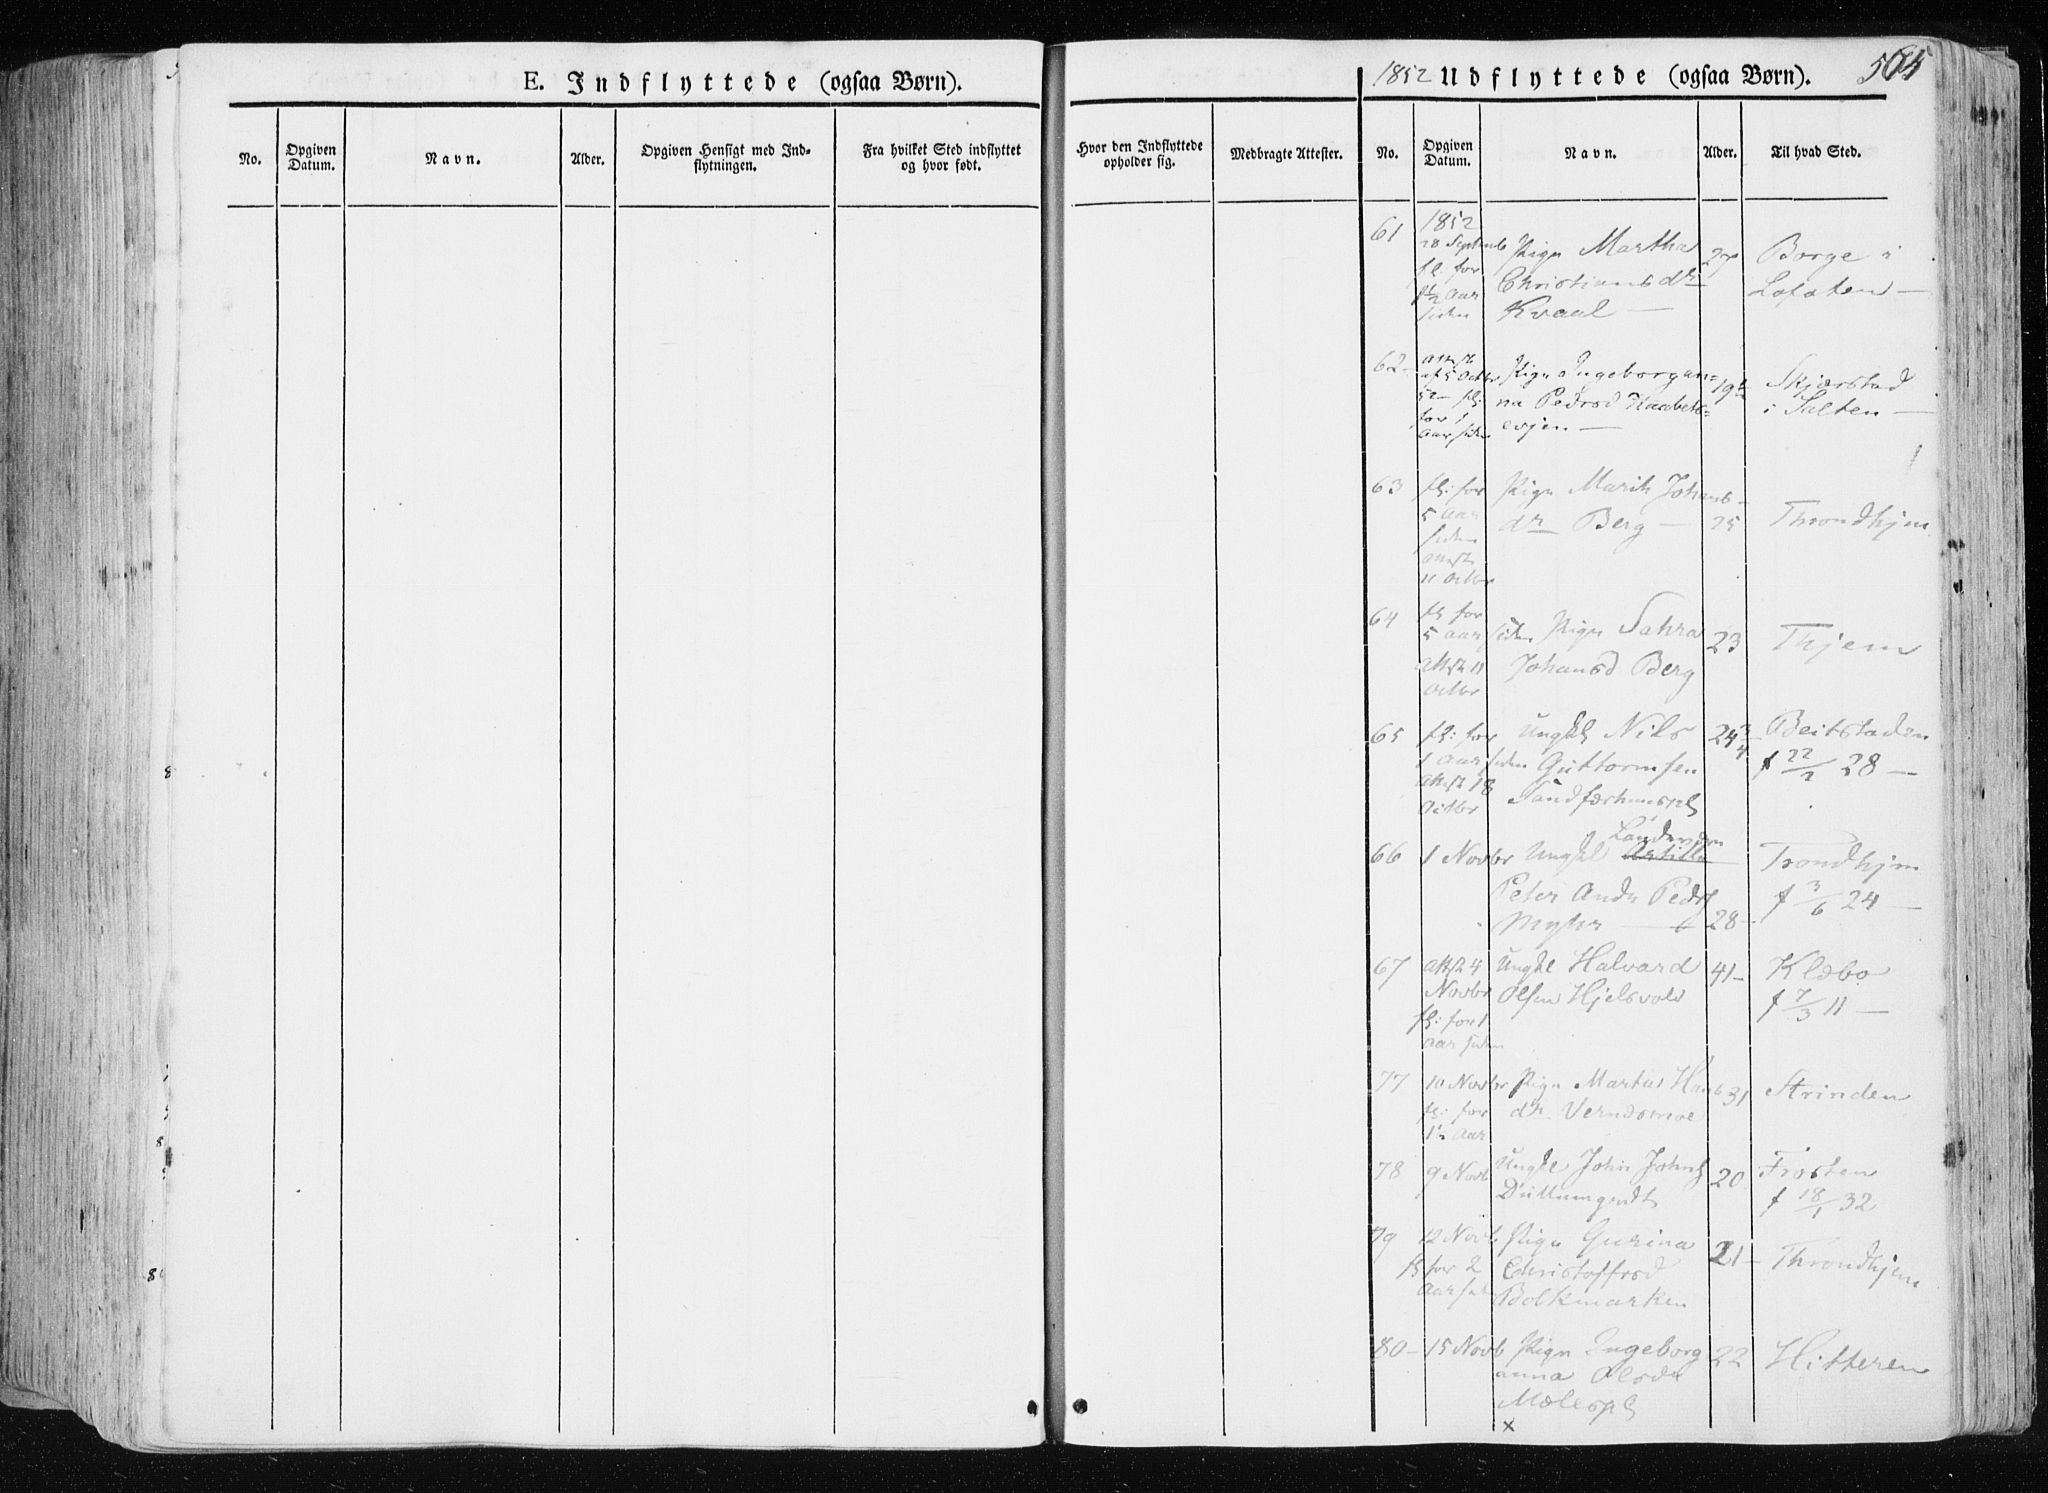 E. Indflyttede (ogsaa Børn).
1852 Udflyttede (ogsaa Børn).
565
No.
Opgiven Datum.
Navn.
Alder.
Opgiven Hensigt med Ind-
flytningen.
Fra hvilket Sted indflyttet
og hvor født.
Hvor den Indflyttede
opholder sig.
Medbragte Attester.
No.
Opgiven Datum.
Navn.
Alder.
Til hvad Sted.
61 1852
28 Septemb Pige Martha 27 Borge i
fl. for Christiansdr Lofoten —
1½ Aar Kvaal —
siden
62 Attest
af 5 Octbr Pige Ingeborgan= 19 Skjærstad
52 fl: na Pedersd i Salten —
for 1 evjen —
Aar siden
63 fl: for Pige Marit Johans-
5 Aar dr Berg — 25 Throndhjem
siden
Attest
11 Octbr
64 fl for
5 Aar siden Pige Sahra 23 Thjem
Attest 11 Johansd Berg
Octbr
65 fl: for Ungkl Nils 24 Beitstaden
1 Aar siden Guttormsen f 22/2 28 —
Attest 18
Octbr
66 1 Novbr Ungkl Trondhjem
Peter Andr Peders f 3/6 24 —
Myhr — 28 —
67 Attest 4 Ungkl Halvard 41 — Klæbo
Novbr Olsen Hjelsvold f 7/3 11 —
fl: for 1
Aar siden
77 10 Novbr Pige Martha Hans 31 Strinden
fl: for dr.
1½ Aar
78 9 Novb Ungkl John Johns 20 Frosten
f 18/1 32
79 12 Novb Pige Gurina 21 — Throndhjem
fl for 2 Christoffersd
Aar siden Bolkmarken
80 — 15 Novb Pige Ingeborg 22 Hitteren
anna Olsdr
Molespl
x